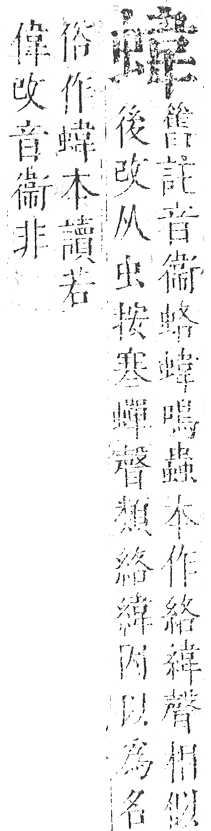 舊註音衞蛒鳴蟲本作絡緯聲相似
後改从虫按寒蟬聲類絡緯因以爲名
俗作本讀若
偉改音衞非